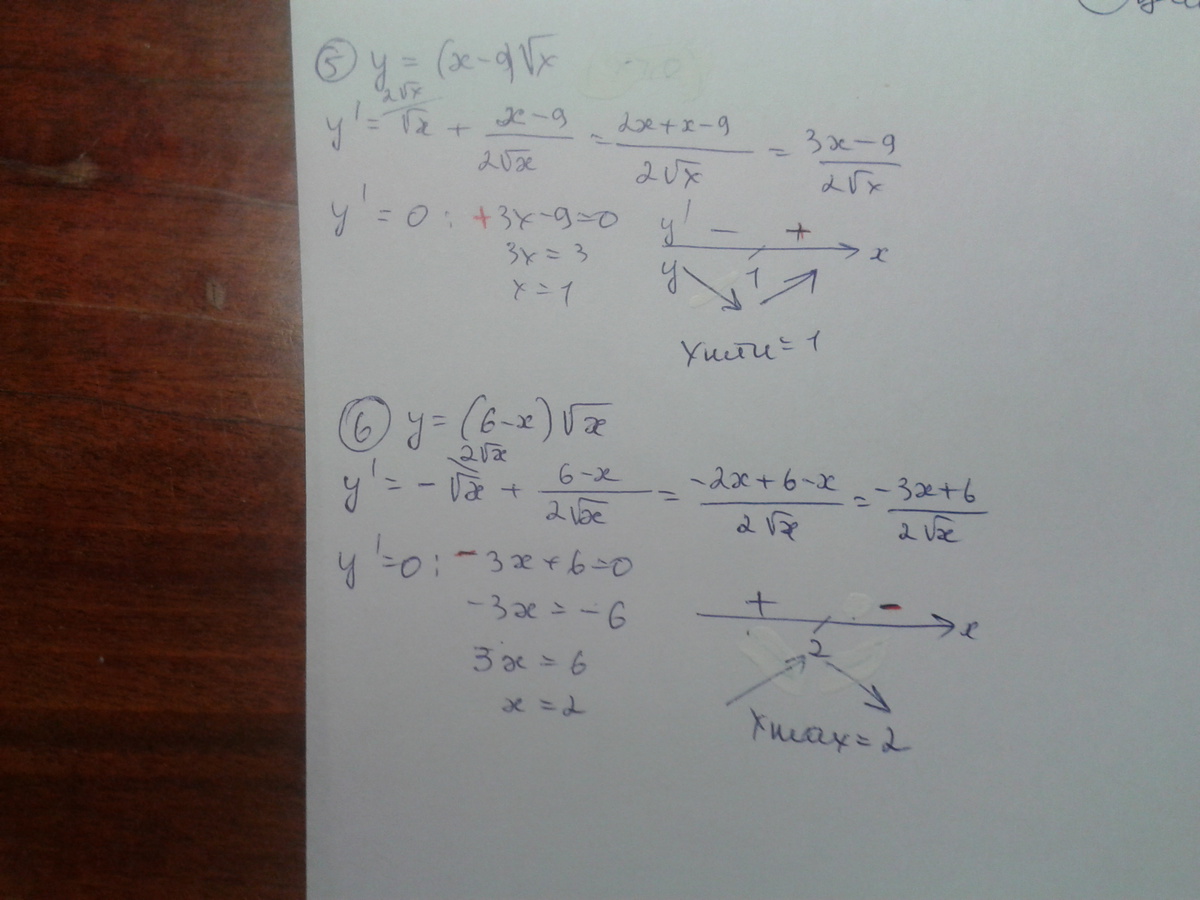 ⑤ y = (x-9)√x
2√x
y' = √x + (x-9)/(2√x) = (2x+x-9)/(2√x) = (3x-9)/(2√x)
y' = 0 : +3x-9=0
3x = 3
x = 1
y' - + x
y 1
xmin = 1
⑥ y = (6-x)√x
2√x
y' = -√x + (6-x)/(2√x) = (-2x+6-x)/(2√x) = (-3x+6)/(2√x)
y'=0: -3x+6=0
-3x = -6
3x = 6
x = 2
+ - x
2
xmax = 2